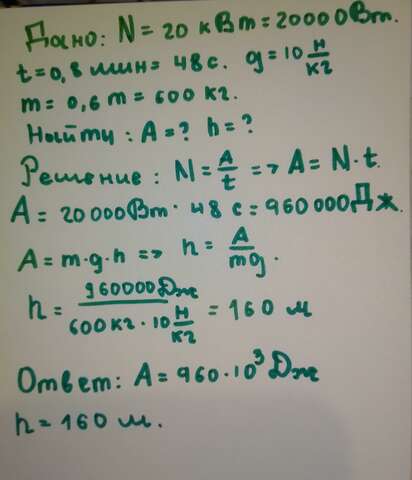 Дано: N = 20 кВт = 20000 Вт.
t = 0,8 мин = 48 с. g = 10 Н/кг
m = 0,6 т = 600 кг.
Нойти : A = ? h = ?
Решение : N = A/t => A = N · t.
A = 20000 Вт · 48 с = 960000 Дж.
A = m · g · h => h = A/mg.
h = 960000 Дж / 600 кг · 10 Н/кг = 160 м
Ответ: A = 960 · 10³ Дж
h = 160 м.